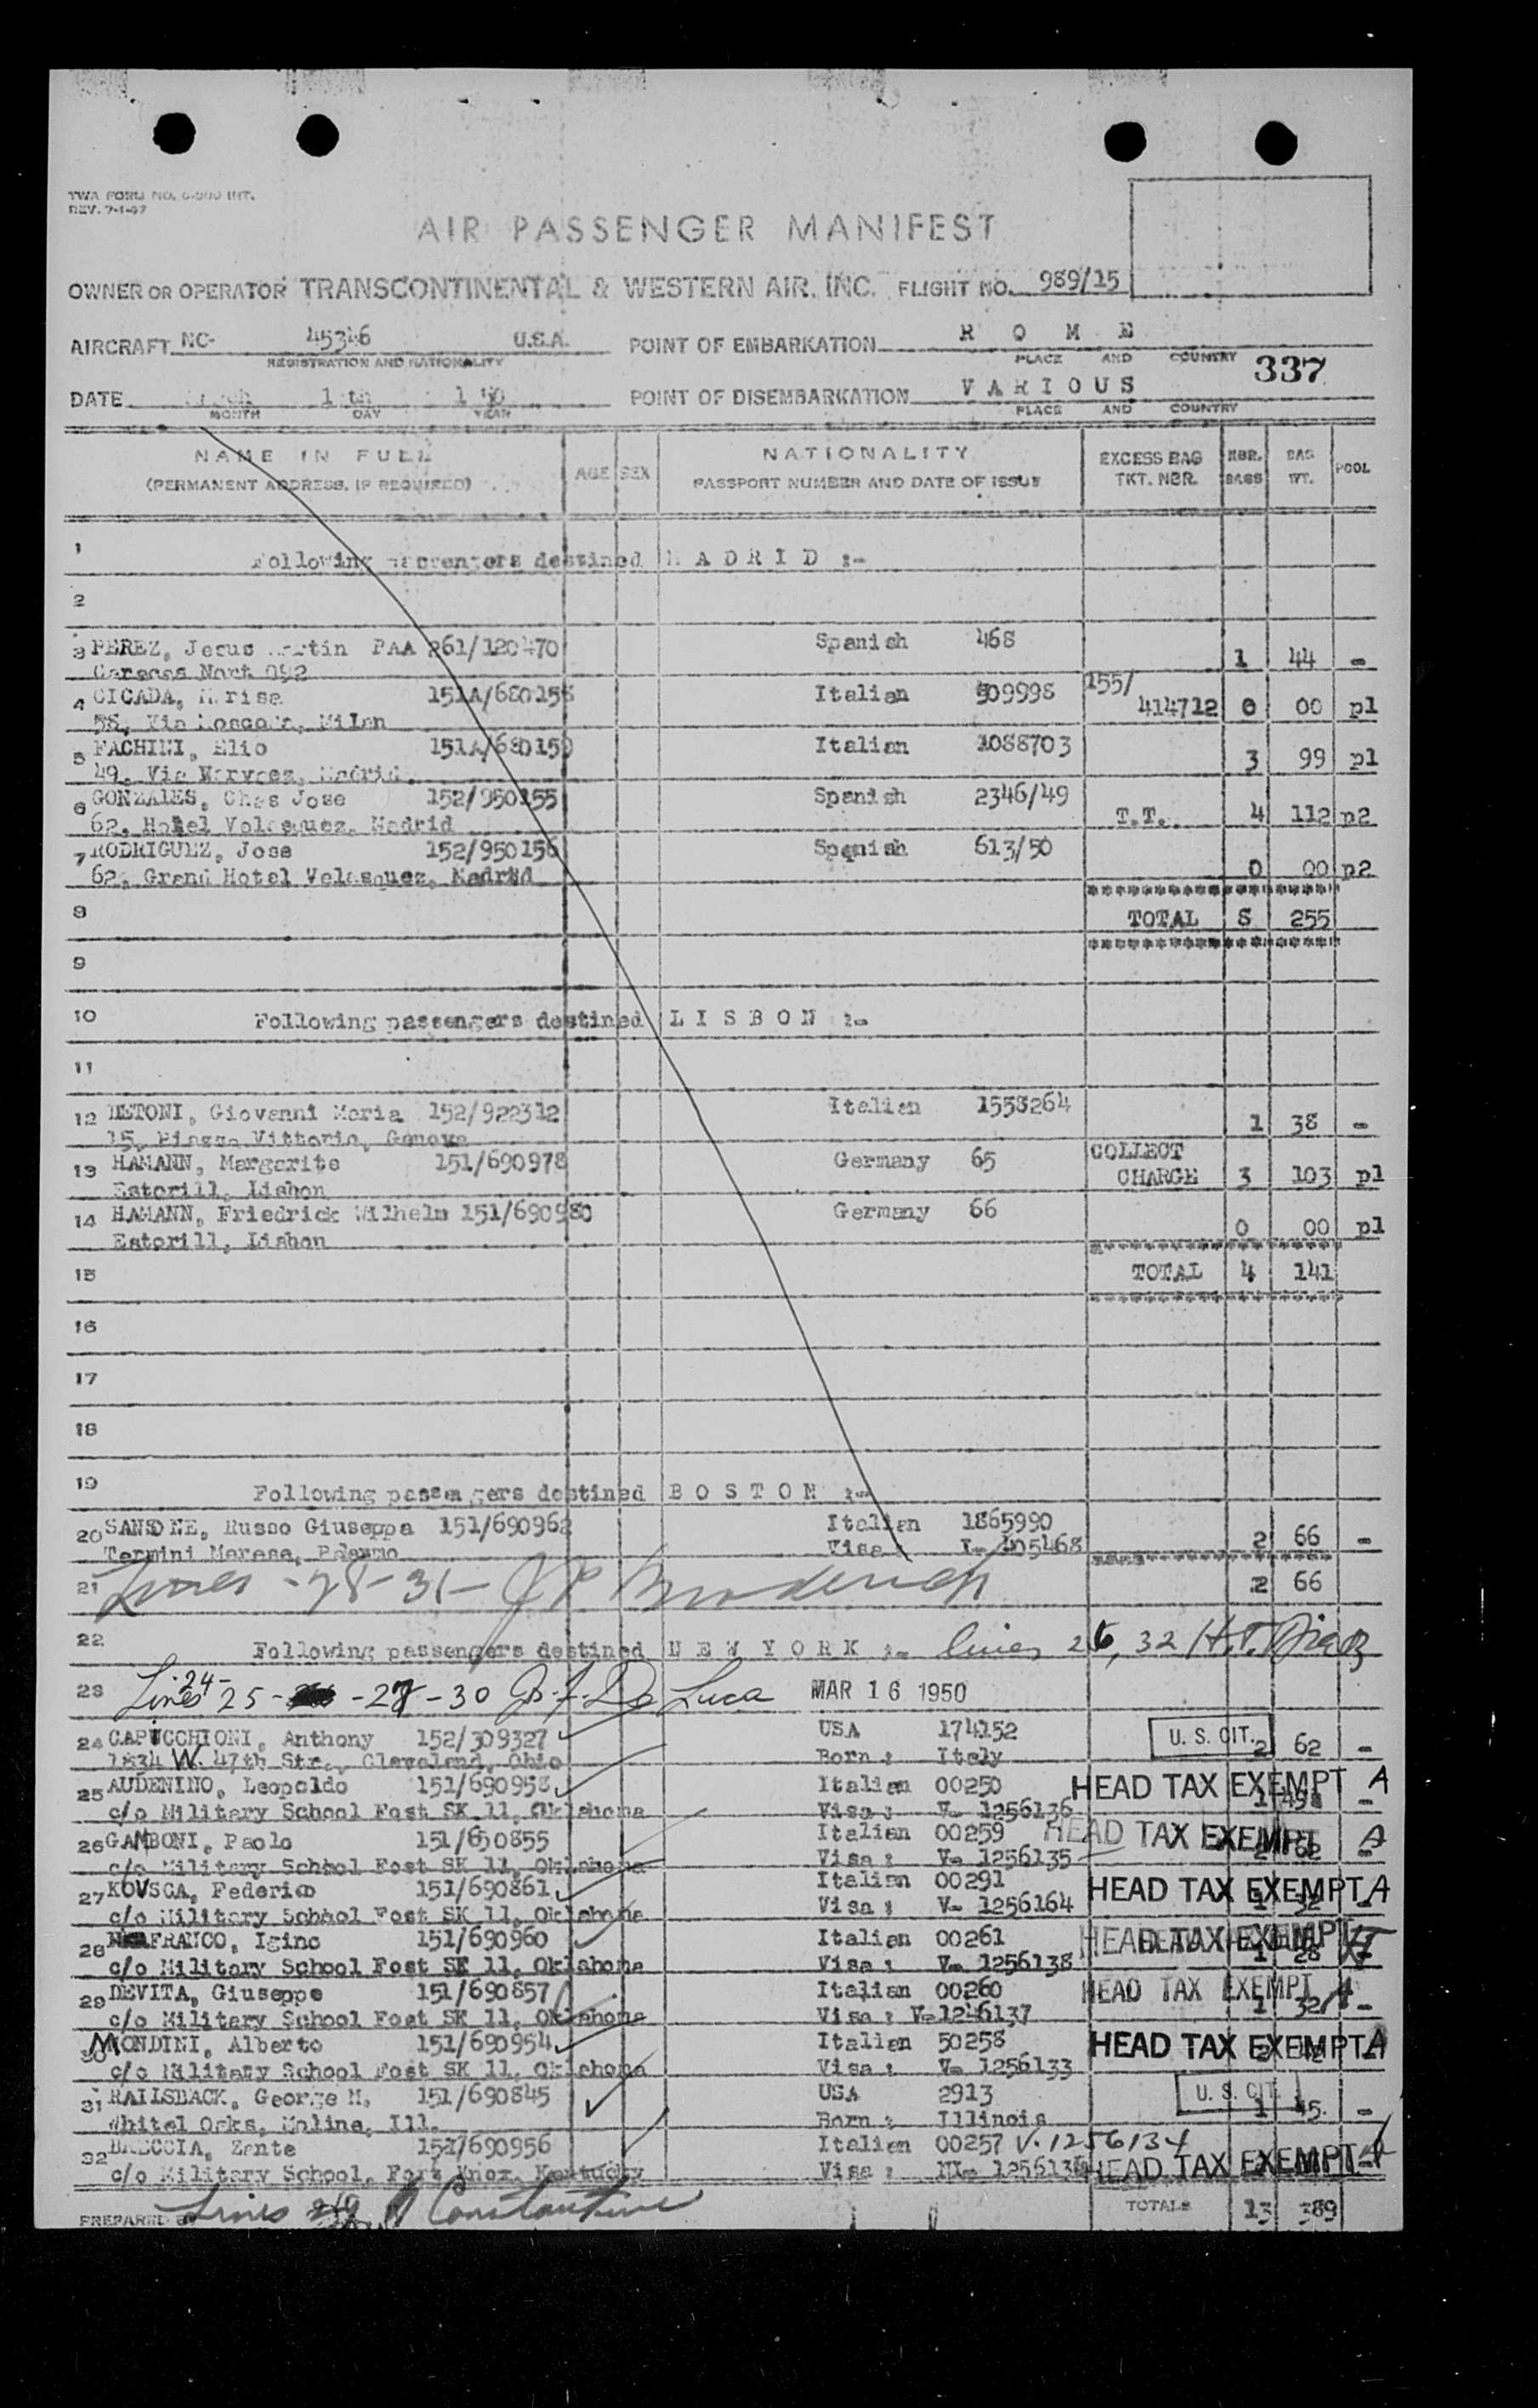 TWA FORM NO. INT.
REV. 7-1-47
AIR PASSENGER MANIFEST
OWNER OR OPERATOR TRANSCONTINENTAL & WESTERN AIR, INC. FLIGHT NO. 989/15
AIRCRAFT NC- 45346 U.S.A. POINT OF EMBARKATION R O M E
REGISTRATION AND NATIONALITY PLACE AND COUNTRY
337
DATE POINT OF DISEMBARKATION V A R I O U S
MONTH DAY YEAR PLACE AND COUNTRY
NAME IN FULL AGE SEX NATIONALITY EXCESS BAG NBR. BAG POOL
(PERMANENT ADDRESS, IF REQUIRED) PASSPORT NUMBER AND DATE OF ISSUE TKT. NBR. BAGS WT.
1 Following passengers destined M A D R I D :-
2
3 PEREZ, Jesus PAA 261/120470 Spanish 468 1 44 -
Caracas Nort 092
4 CICADA, 151A/680158 Italian 509998 155/ 414712 0 00 p1
58, Via Milan
5 FACHINI, Elio 151A/680159 Italian 1088703 3 99 p1
49, Via Madrid
6 GONZALES, Chas Jose 152/950155 Spanish 2346/49 T.T. 4 112 p2
62, Hotel Velasquez, Madrid
7 RODRIGUEZ, Jose 152/950156 Spanish 613/50 0 00 p2
62, Grand Hotel Velasquez, Madrid
8 TOTAL 8 255
9
10 Following passengers destined L I S B O N :-
11
12 DETONI, Giovanni Maria 152/922312 Italian 1558264 1 38 -
15, Piazza Vittoria, Genova
13 HAMANN, Margarite 151/690978 Germany 65 COLLECT CHARGE 3 103 p1
Estorill, Lisbon
14 HAMANN, Friedrick Wilhelm 151/690980 Germany 66 0 00 p1
Estorill, Lisbon
15 TOTAL 4 141
16
17
18
19 Following passengers destined B O S T O N :-
20 SANSONE, Russo Giuseppa 151/690962 Italian 1865990 2 66 -
Termini Palermo Visa : 405468
21 Lines - 28 - 31 - 2 66
22 Following passengers destined N E W Y O R K :- lines 26, 32 H.T. Diaz
23 Lines 24- 25 - - 27 - 30 De Luca MAR 16 1950
24 CAPUCCHIONI, Anthony 152/309327 USA 174152 U. S. CIT. 2 62 -
1834 W. 47th Str., Cleveland, Ohio Born : Italy
25 AUDENINO, Leopoldo 151/690958 Italian 00250 HEAD TAX EXEMPT A
c/o Military School Fost SK 11, Oklahoma Visa : V- 1256136 1 -
26 GAMBONI, Paolo 151/690855 Italian 00259 HEAD TAX EXEMPT A
c/o Military School Fost SK 11, Oklahoma Visa : V- 1256135
27 KOVSCA, Federico 151/690861 Italian 00291 HEAD TAX EXEMPT A
c/o Military School Fost SK 11, Oklahoma Visa : V- 1256164 1 32
28 FRANCO, Igino 151/690960 Italian 00261 HEAD TAX EXEMPT
c/o Military School Fost SK 11, Oklahoma Visa : V- 1256138 1 28
29 DEVITA, Giuseppe 151/690857 Italian 00260 HEAD TAX EXEMPT A
c/o Military School Fost SK 11, Oklahoma Visa : V-1246137 1 32 -
30 MONDINI, Alberto 151/690954 Italian 50258 HEAD TAX EXEMPT A
c/o Military School Fost SK 11, Oklahoma Visa : V- 1256133
31 RAILSBACK, George H. 151/690845 USA 2913 U. S. CIT. 1 45 -
Whitel Oaks, Moline, Ill. Born : Illinois
32 BRECCIA, Zante 151/690956 Italian 00257 V. 1256134
c/o Military School, Fort Knox, Kentucky Visa : 1256134 HEAD TAX EXEMPT
PREPARED BY Lines 29 Constantine TOTALS 13 389